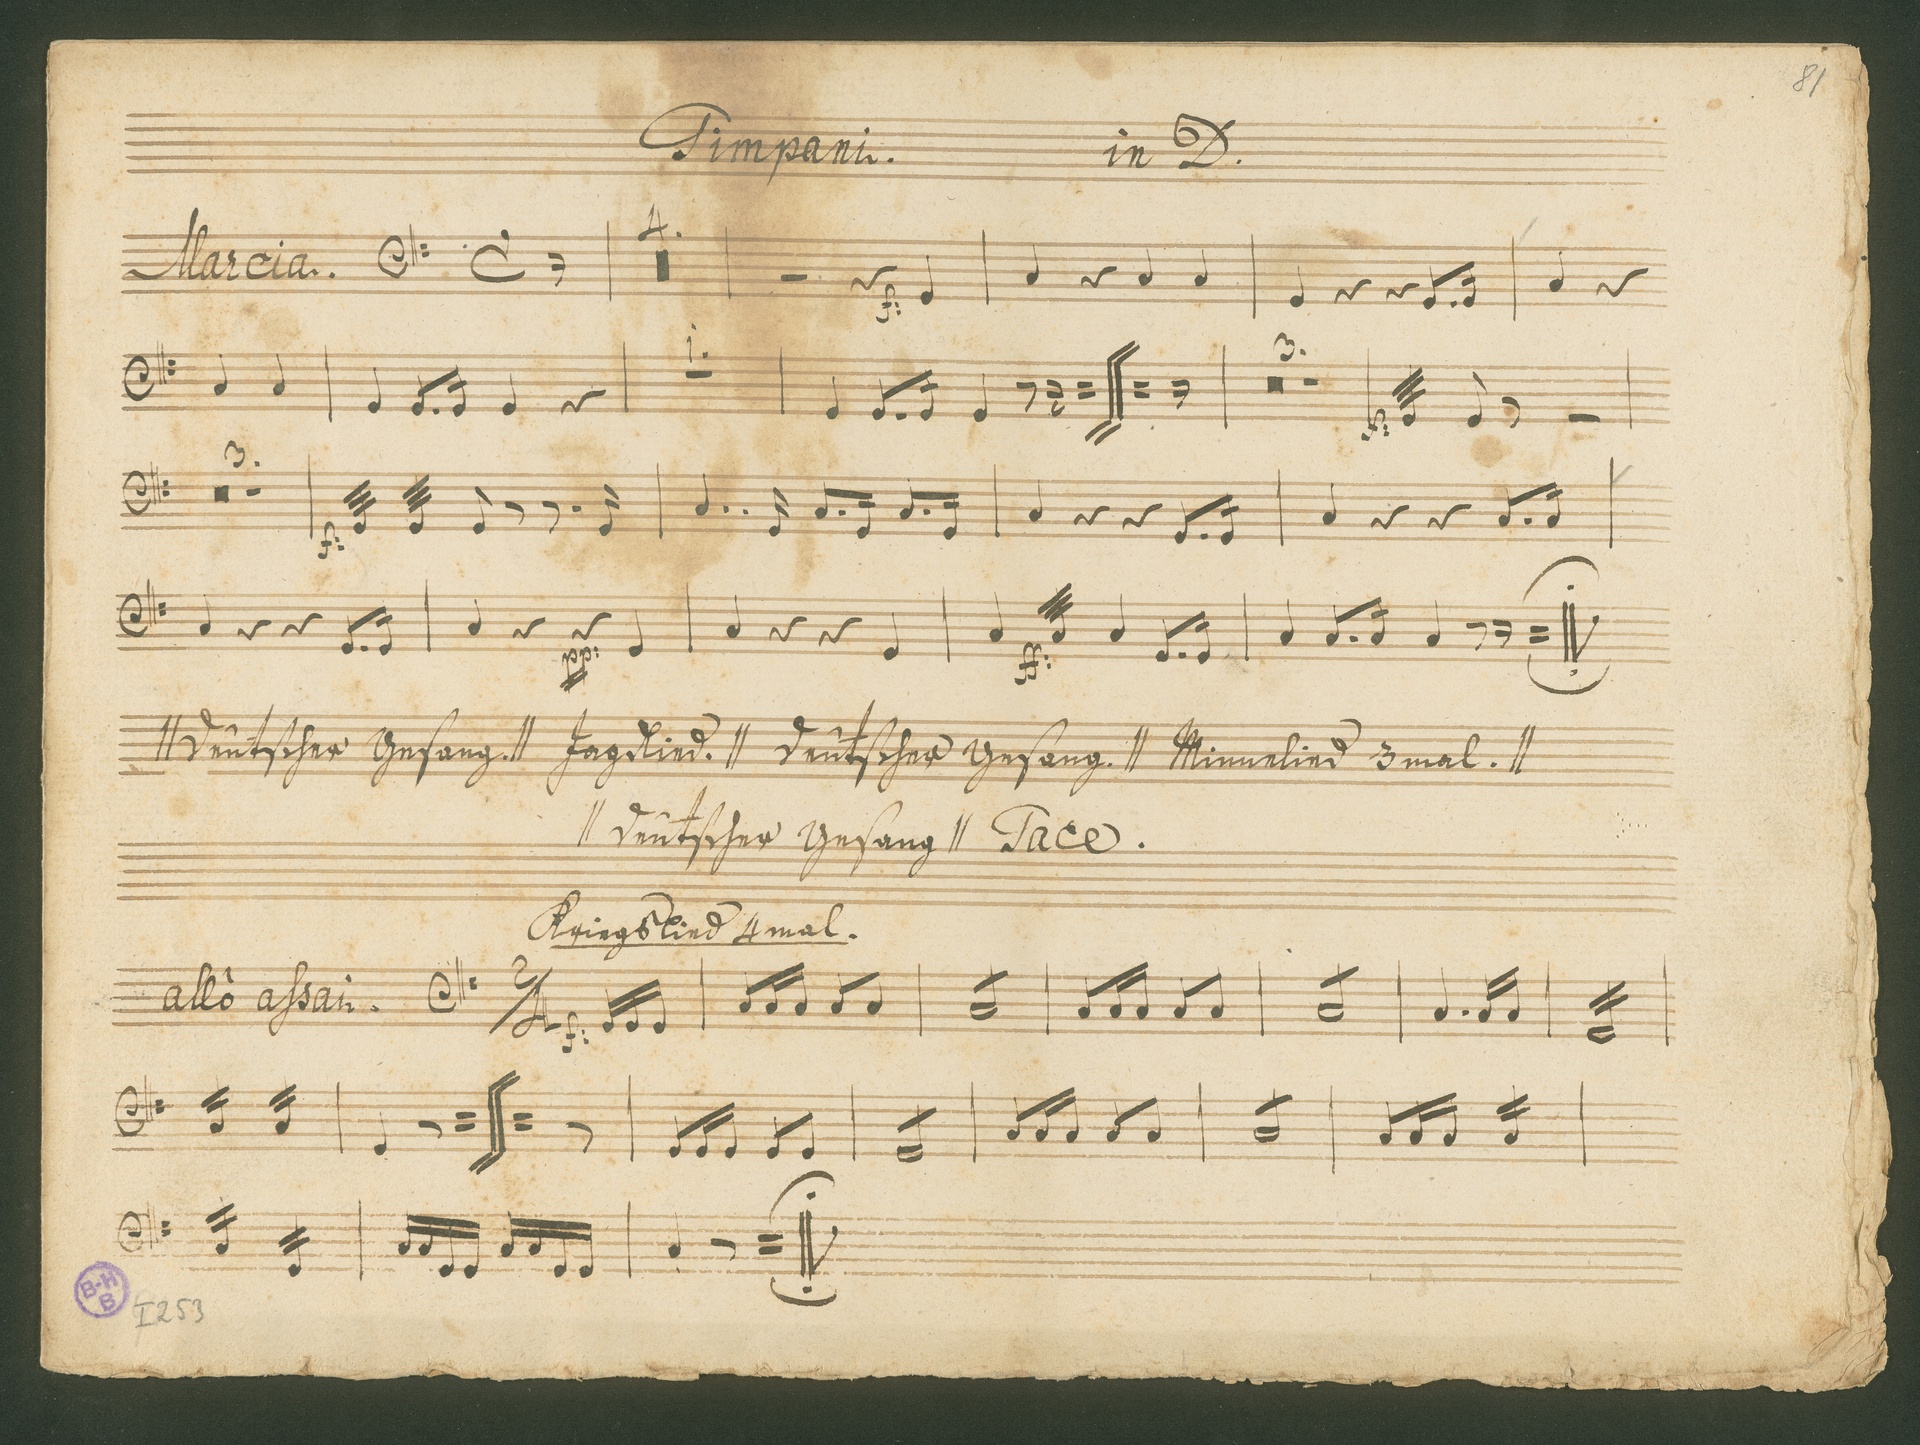 81
Timpani. in D.
Marcia.
4.
f:
1.
3.
f:
3.
f:
pp:
ff:
// deutscher Gesang. // Jagdlied. // deutscher Gesang. // Minnelied 3 mal. //
// deutscher Gesang // Tace.
Kriegslied 4 mal.
allo assai. 2/4 f:
B-H
B
I 253